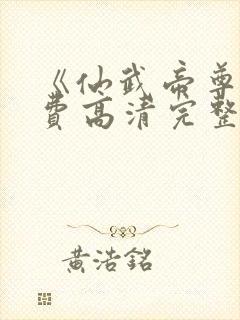 《仙武帝尊
费高清完整
黄浩銘